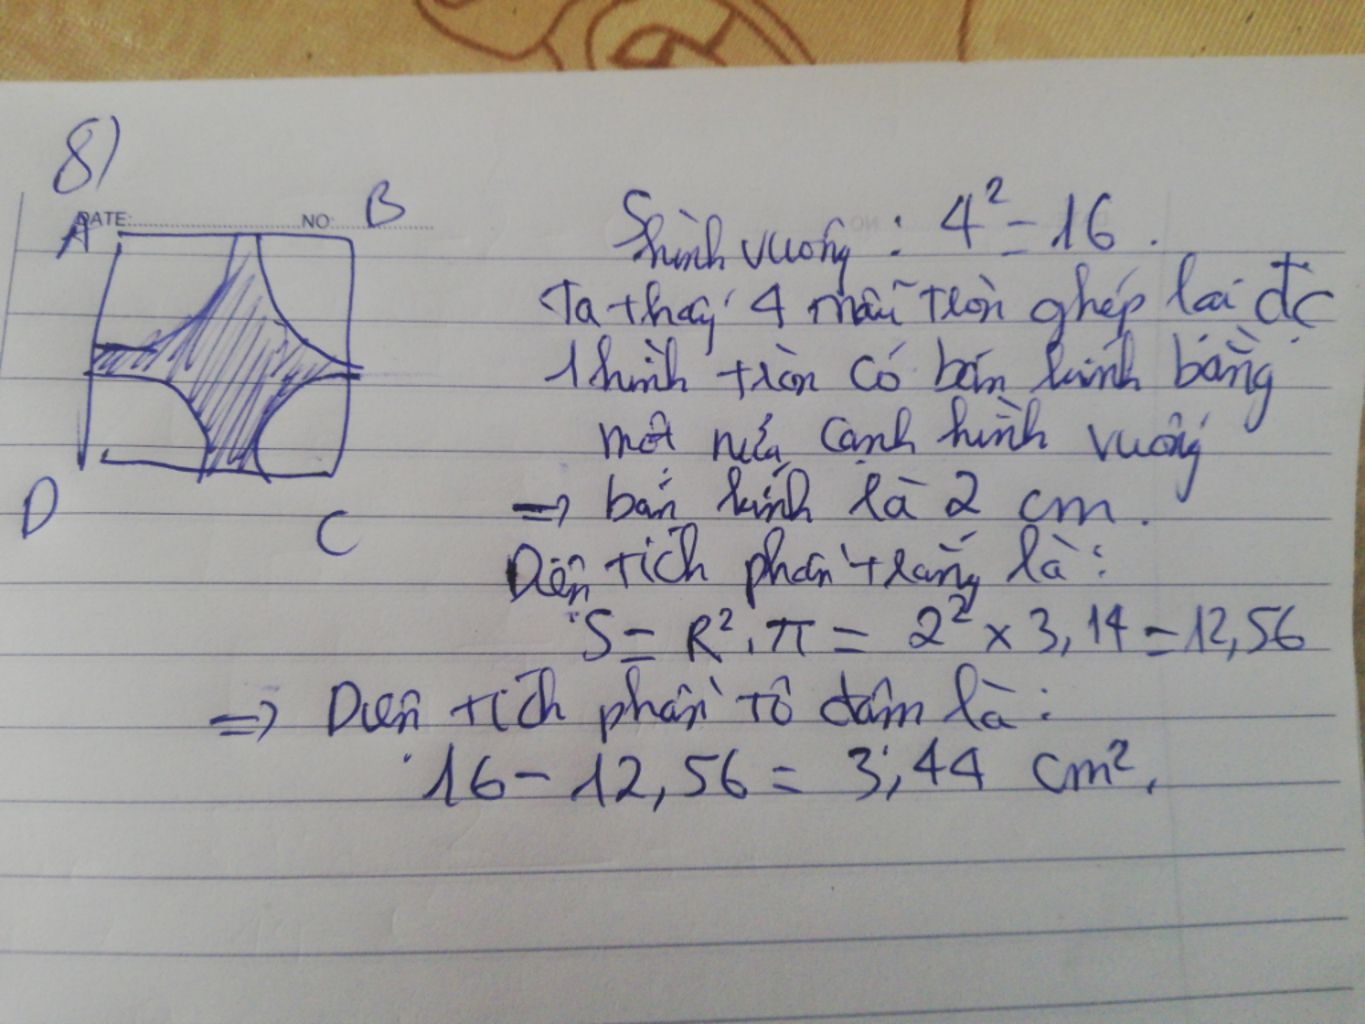 8)
DATE: NO:
A B
D C
Shình vuông : 4² = 16 .
Ta thấy 4 mẫu tròn ghép lại đc
1 hình tròn có bán kính bằng
một nửa cạnh hình vuông
=> bán kính là 2 cm .
Diện tích phần trắng là :
S = R² . π = 2² x 3,14 = 12,56
=> Diện tích phần tô đâm là :
16 - 12,56 = 3,44 cm² .